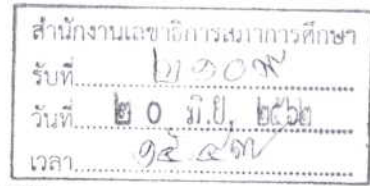 สำนักงานเลขาธิการสภาการศึกษา
รับที่
วันที่ ๒ ๐ มิ.ย. ๒๕๖๒
เวลา